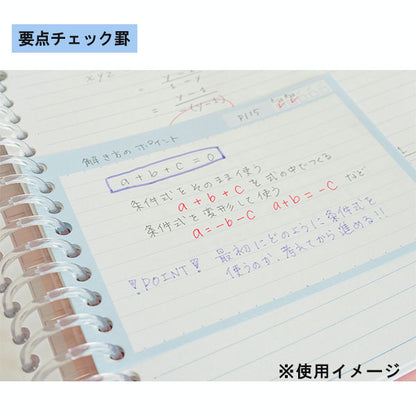 要点チェック罫
xyz
y-1
1-y
= y-1
-(y-1)
P115
解き方のポイント
a+b+c=0
条件式をそのまま使う
a+b+cを式の中でつくる
条件式を変形して使う
a=-b-c a+b=-c など
!POINT! 最初にどのように条件式を
使うのか、考えてから進める!!
※使用イメージ